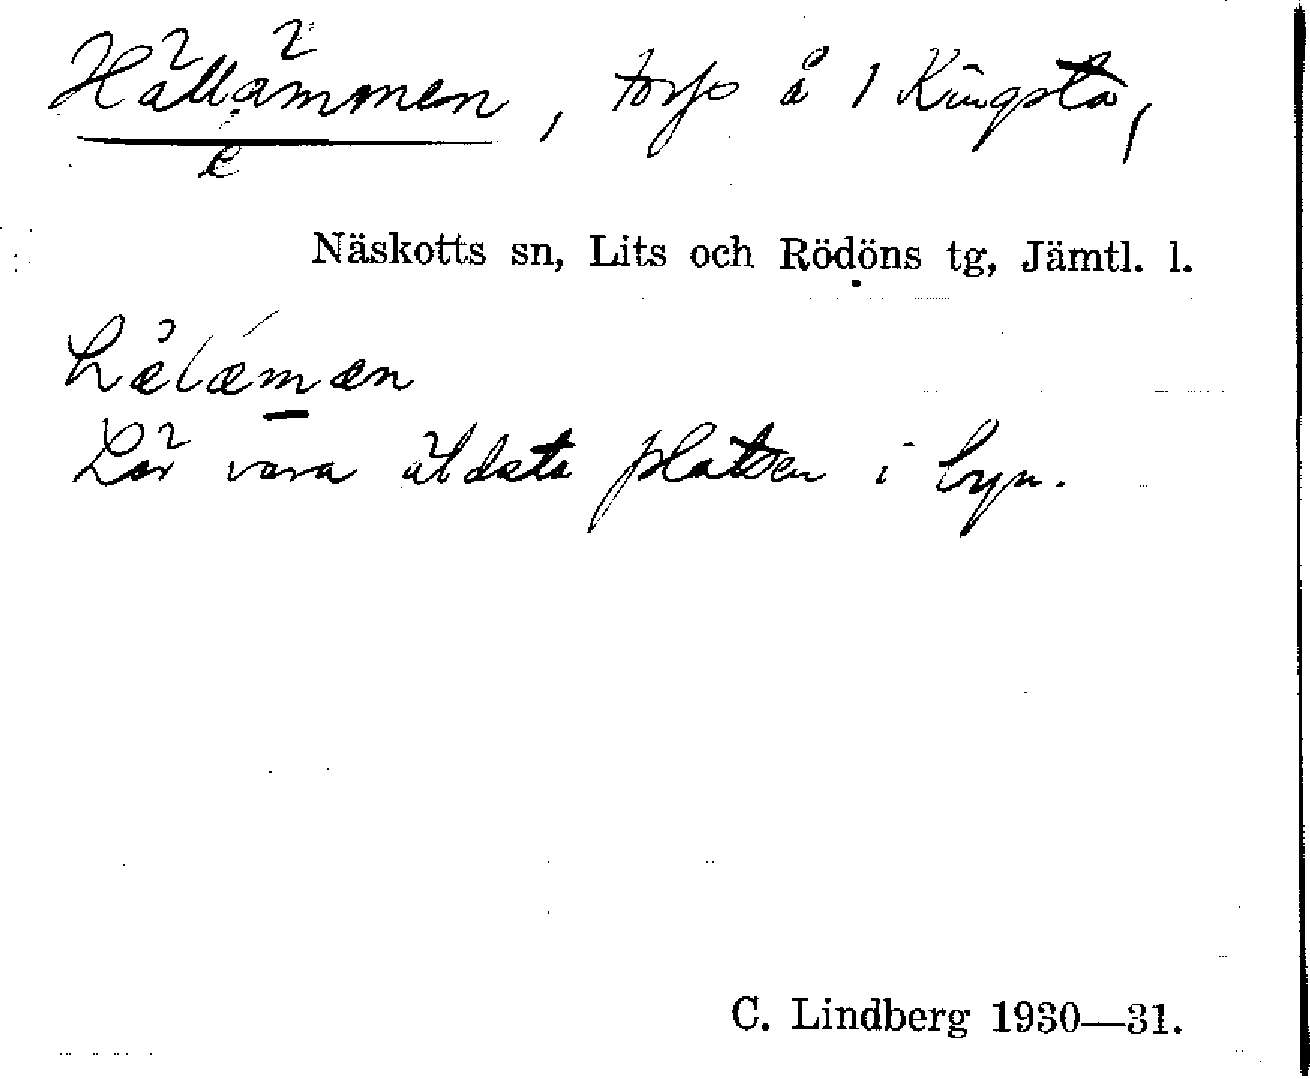 Hällämmen, torp å 1 Kingsta,
e
Näskotts sn, Lits och Rödöns tg, Jämtl. l.
hälæmæn
Lär vara äldsta platsen i byn.
C. Lindberg 1930—31.